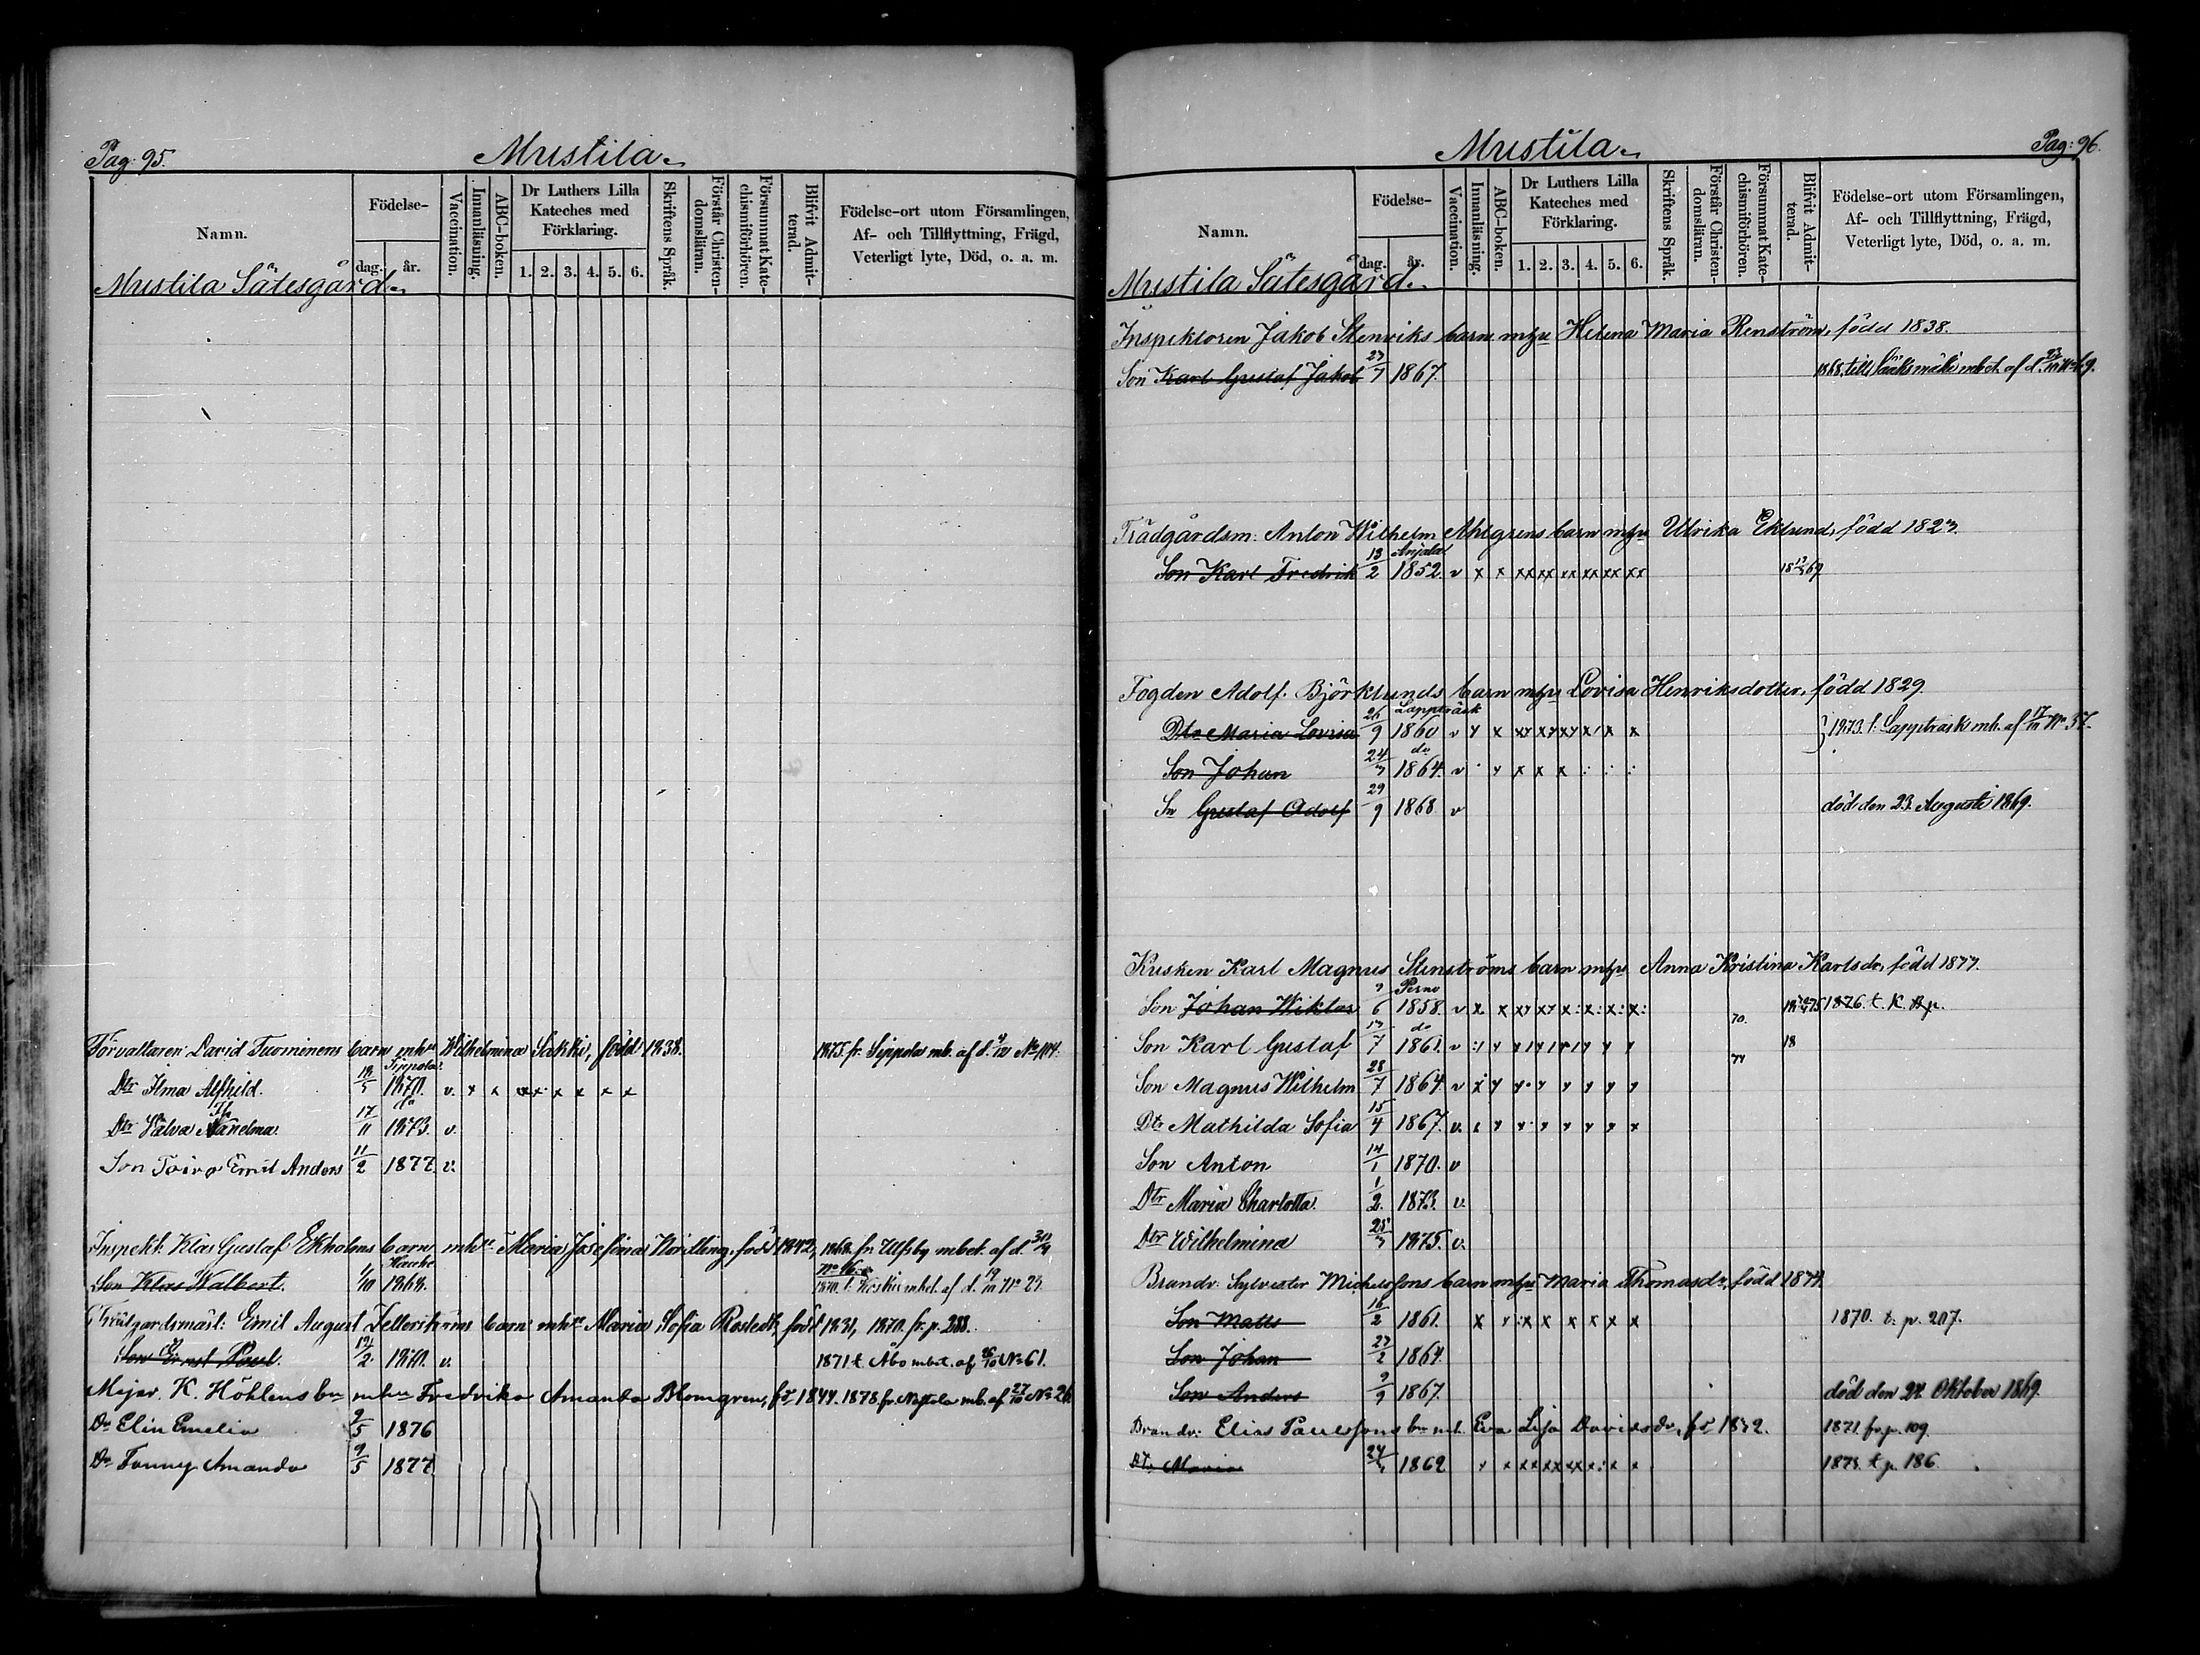 Pag: 95.
Mustila
Namn.
Födelse-
dag.
år.
Vaccination.
Innanläsning.
ABC-boken.
Dr Luthers Lilla Kateches med Förklaring.
1. 2. 3. 4. 5. 6.
Skriftens Språk.
Förstår Christendomsläran.
Försummat Katechismiförhören.
Blifvit Admitterad.
Födelse-ort utom Församlingen,
Af- och Tillflyttning, Frägd,
Veterligt lyte, Död, o. a. m.
Mustila Sätesgård
Förvaltaren David Tuominens barn mhu Wilhelmina Sakki, född 1838. 1875 fr. Sippola mb. af d.
Sippola
Dtr Ilma Alfhild. 1870. v. x x x x x x x
Dtr 17/11 1873. v.
Son Toivo Emil Anders 11/2 1877 v.
Inspekt: Klas Gustaf Ekholms barn mhu Maria Josefina född 1842, 1868 fr. Ulfsby mbet. af d.
Son Klas Walbert. 1/10 1868.
Emil August barn mhu Maria Sofia född 1831, 1870. fr. p. 288.
Son Ernst Paul. 1870. v. 1871 t. Åbo mbet. af No 61.
Mejer. K. Höhlens bn mhu Fredrika Amanda Blomgren, fd 1844. 1878 fr. mb. af 27/10 No 26
Dr Elin Emelia 9/5 1876
Dr Fanny Amanda 9/5 1877
Mustila
Pag: 96.
Namn.
Födelse-
dag.
år.
Vaccination.
Innanläsning.
ABC-boken.
Dr Luthers Lilla Kateches med Förklaring.
1. 2. 3. 4. 5. 6.
Skriftens Språk.
Förstår Christendomsläran.
Försummat Katechismiförhören.
Blifvit Admitterad.
Födelse-ort utom Församlingen,
Af- och Tillflyttning, Frägd,
Veterligt lyte, Död, o. a. m.
Mustila Sätesgård
Inspektoren Jakob Stenviks barn mhu Helena Maria Renström, född 1838.
Son Karl Gustaf Jakob 23/7 1867. 1868. till Sääksmäki mbet. af d.
Trädgårdsm: Anton Wilhelm Ahlgrens barn mhu Ulrika Eklund, född 1823.
Anjala
Son Karl Fredrik 13/2 1852 v x x xx xx xx xx xx xx
Fogden Adolf Björklunds barn mhu Lovisa Henriksdotter, född 1829.
Lappträsk
Dtr Maria Lovisa 26/9 1860 1873. t. Lappträsk mb. af No 57.
do
Son Johan 1864. v
Sn Gustaf Adolf 29/9 1868 v död den 23 Augusti 1869.
Kusken Karl Magnus Stenströms barn mhu Anna Kristina Karlsdr, född
Perno
Son Johan Wiktor 1858. v 1876. t. K.
do 70.
Son Karl Gustaf 1861. v 18
74
Son Magnus Wilhelm 28/7 1864 v
Dtr Mathilda Sofia 15/4 1867. v.
Son Anton 14/1 1870. v
Dtr Maria Charlotta. 1/2. 1873. v.
Dtr Wilhelmina 1875. v.
Brandv: Sylvester Michelssons barn mhu Maria Thomasdr, född
Son Matts 16/2 1861. x 1870. t. p. 207.
Son Johan 27/2 1864.
Son Anders 9/9 1867. död den 24 Oktober 1869.
Brandv: Elias Paulssons bn mh. Eva Lisa Davidsdr, fd 1842. 1871. fr. p. 109.
Dtr Maria 1862 t. p. 186.